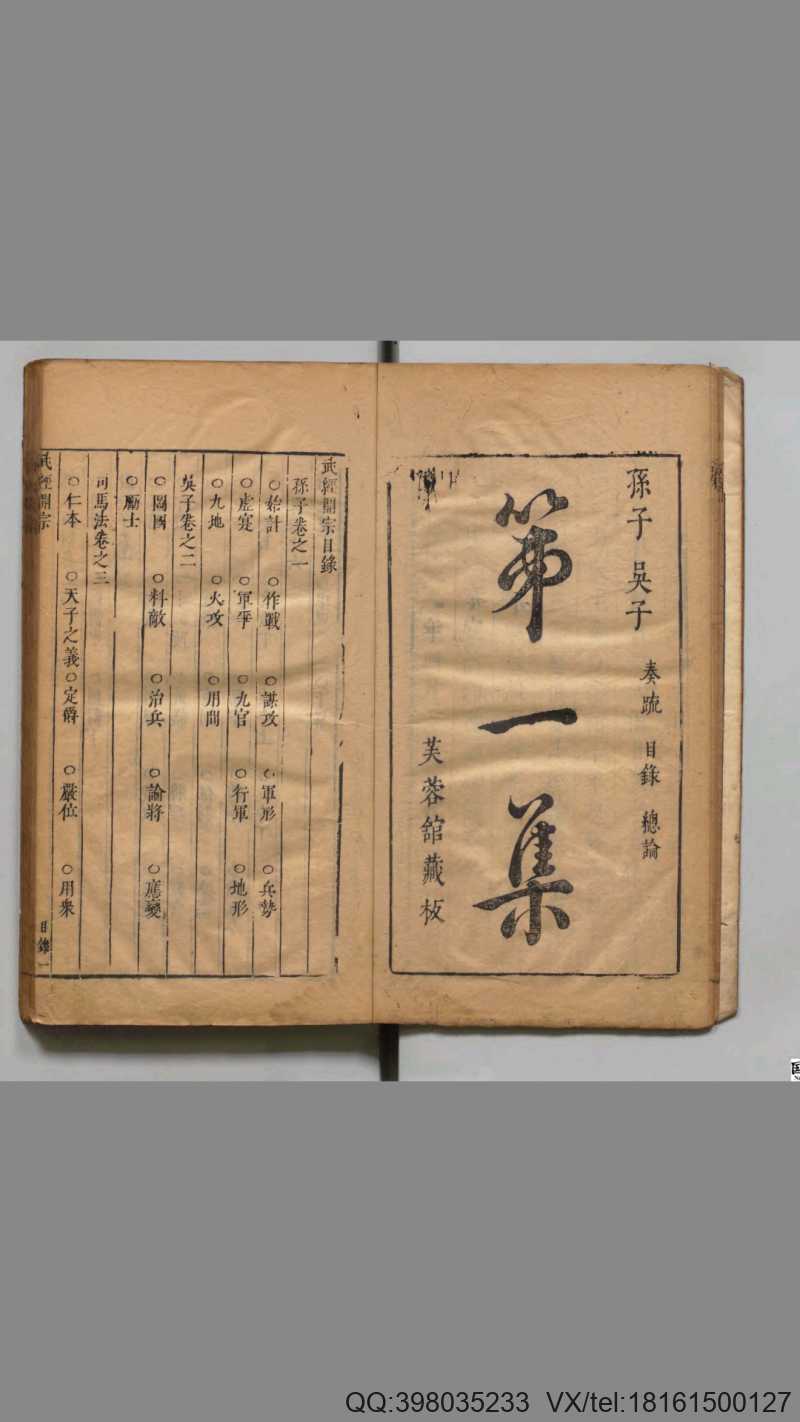 孫子 吳子 奏疏 目錄 總論
第一集
芙蓉館藏板
武經開宗目錄
孫子卷之一
○始計 ○作戰 ○謀攻 ○軍形 ○兵勢
○虛寔 ○軍爭 ○九官 ○行軍 ○地形
○九地 ○火攻 ○用間
吳子卷之二
○圖國 ○料敵 ○治兵 ○論將 ○應變
○勵士
司馬法卷之三
○仁本 ○天子之義 ○定爵 ○嚴位 ○用衆
武經開宗 目錄 一
QQ:398035233 VX/tel:18161500127